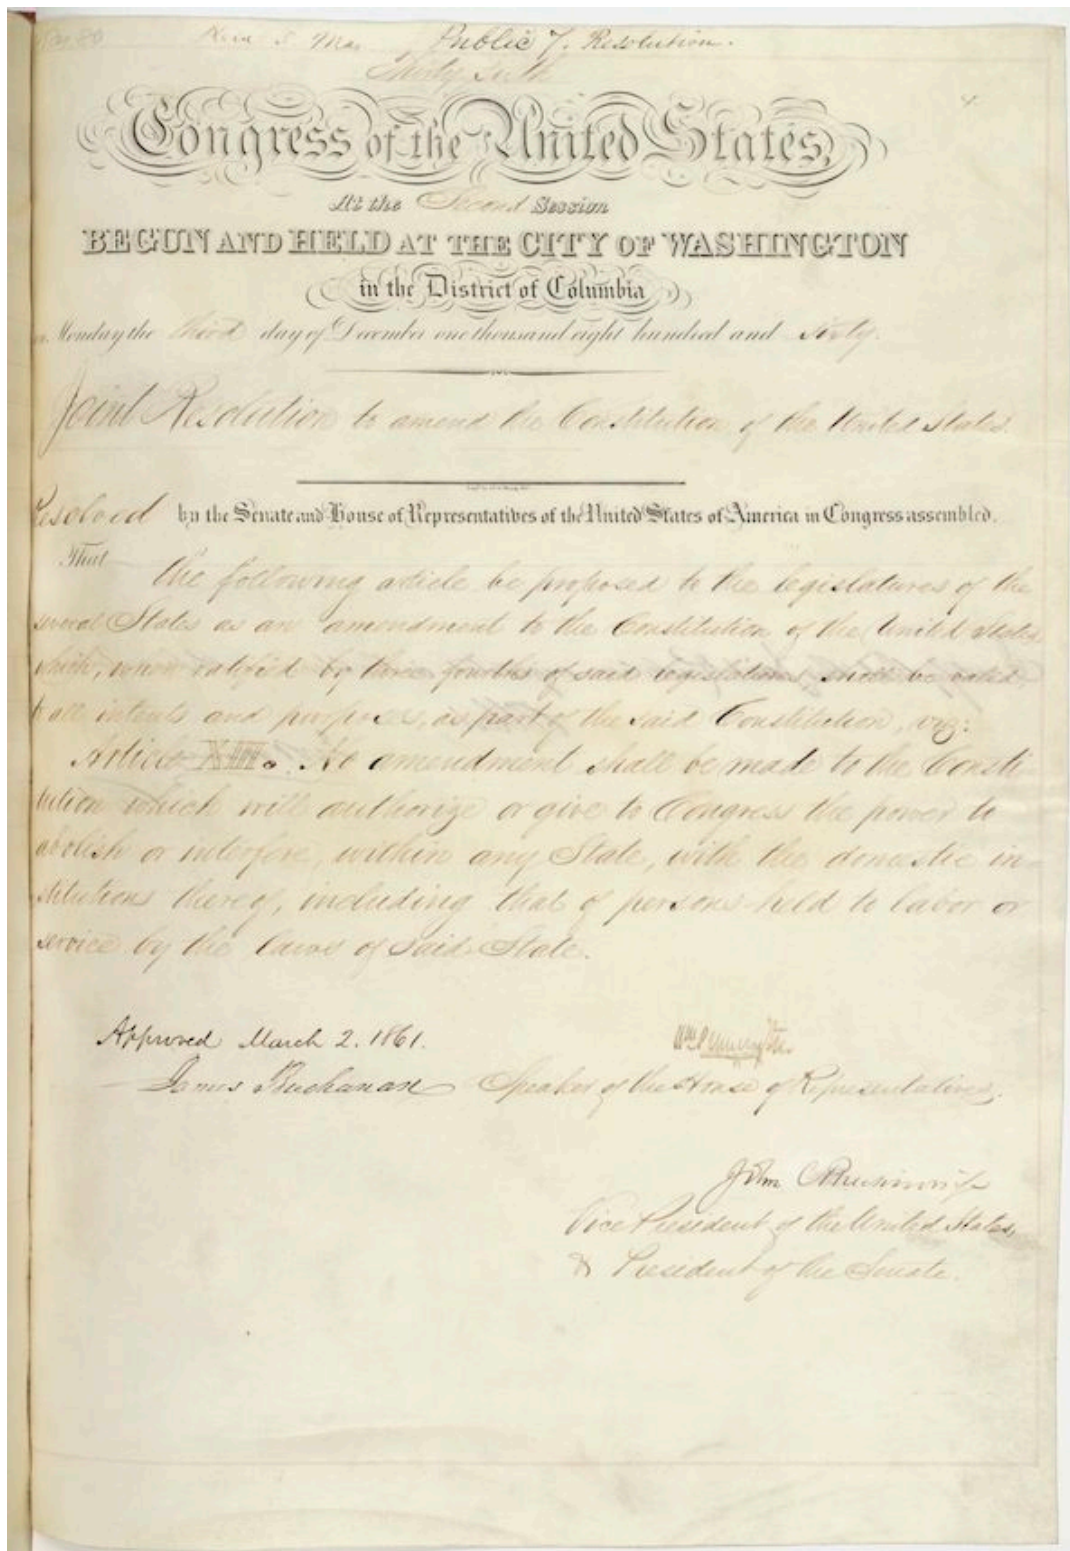 Public 7. Resolution.
Thirty Sixth
Congress of the United States,
At the Second Session
BEGUN AND HELD AT THE CITY OF WASHINGTON
in the District of Columbia
Monday the third day of December one thousand eight hundred and sixty.
Joint Resolution to amend the Constitution of the United States.
Resolved by the Senate and House of Representatives of the United States of America in Congress assembled,
That
the following article be proposed to the legislatures of the
several States as an amendment to the Constitution of the United States
which, when ratified by three fourths of said legislatures, shall be valid,
to all intents and purposes, as part of the said Constitution, viz:
Article XIII. No amendment shall be made to the Consti-
tution which will authorize or give to Congress the power to
abolish or interfere, within any State, with the domestic in-
stitutions thereof, including that of persons held to labor or
service by the laws of said State.
Approved March 2. 1861.
James Buchanan
Wm Pennington
Speaker of the House of Representatives.
John C Breckinridge
Vice President of the United States,
& President of the Senate.